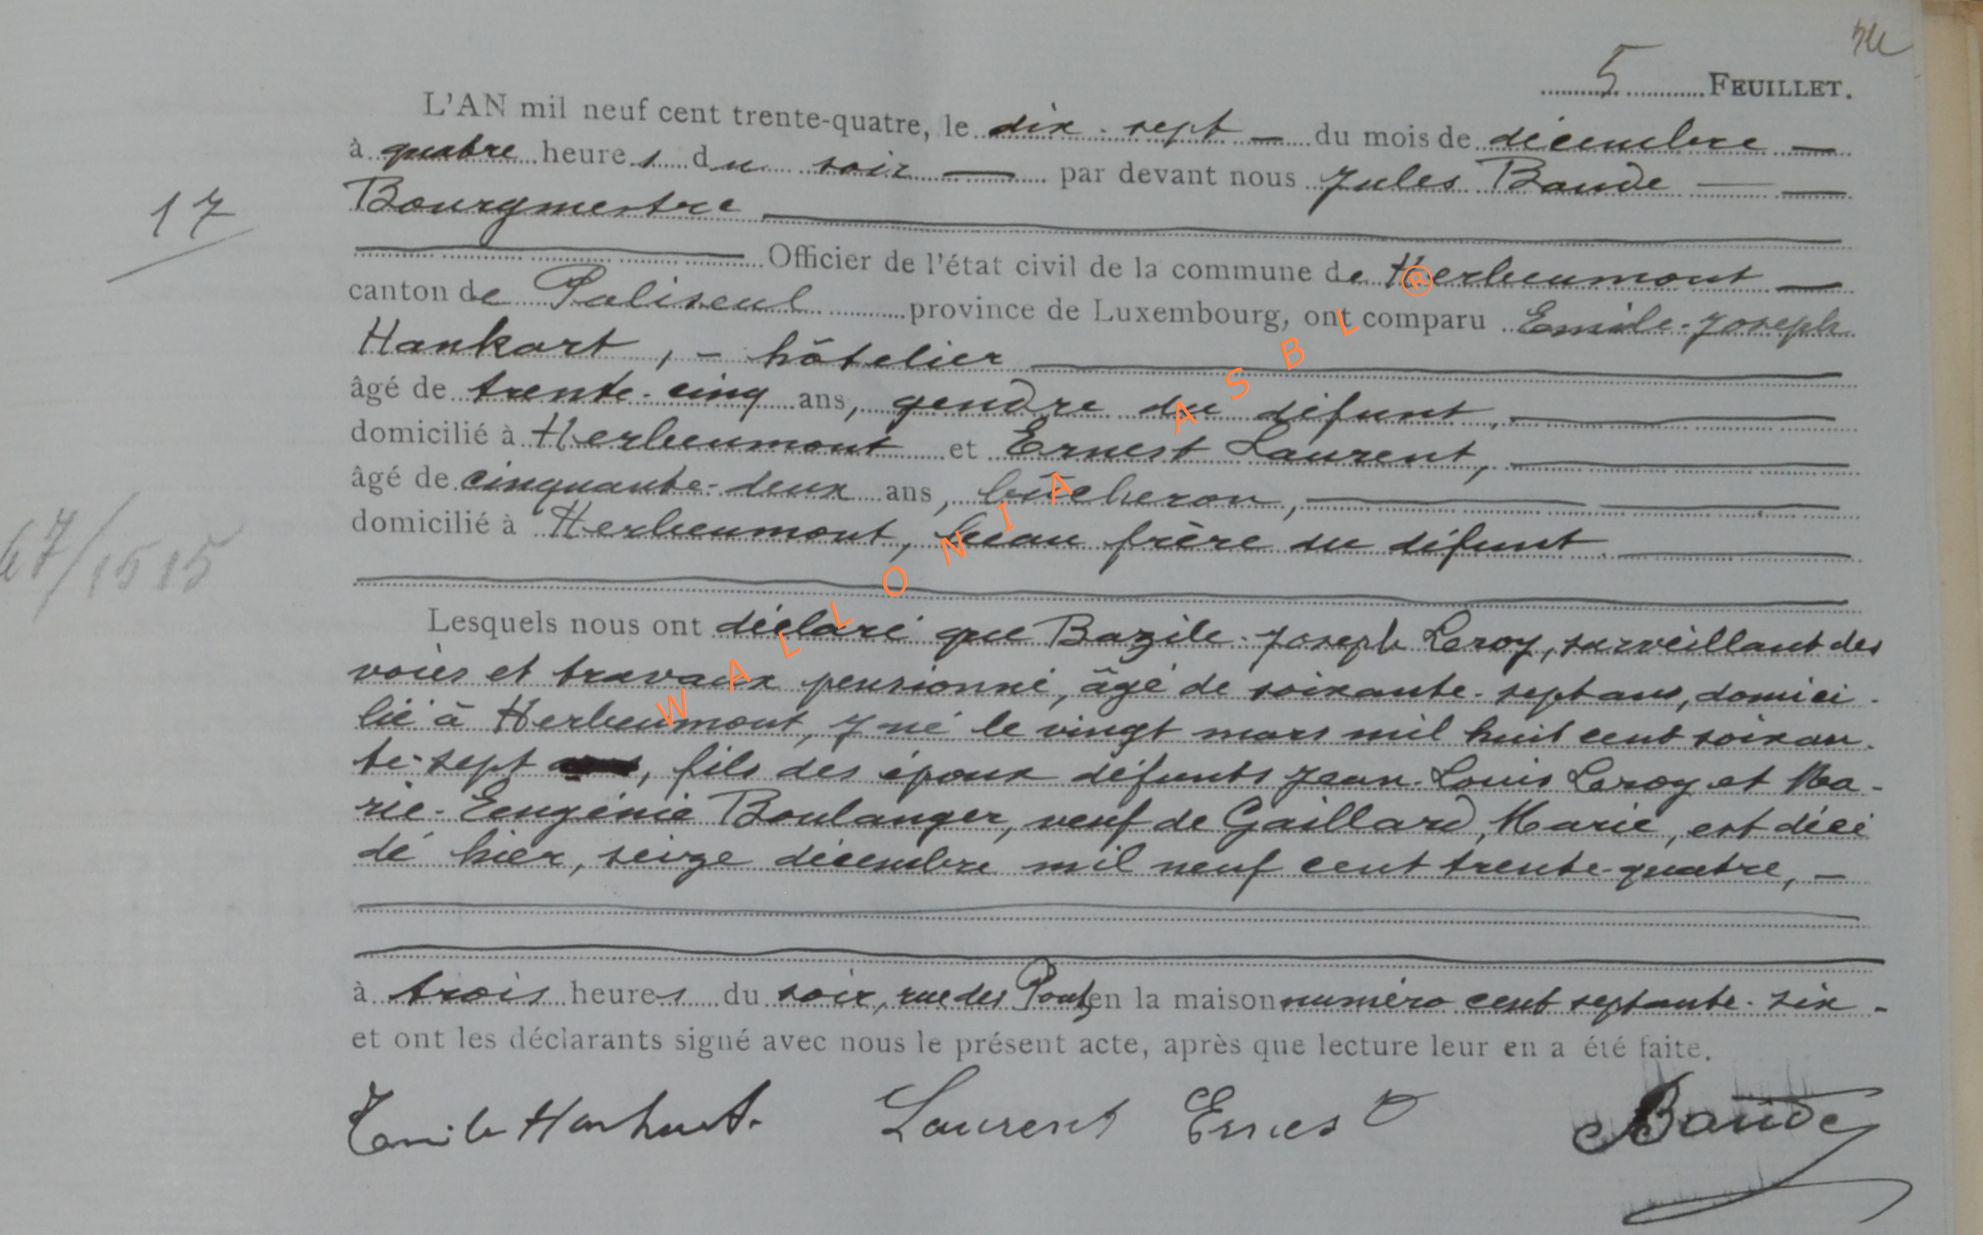 5 FEUILLET.
L'AN mil neuf cent trente-quatre, le dix-sept du mois de décembre
à quatre heures du soir par devant nous Jules Baude
17
Bourgmestre
Officier de l'état civil de la commune de Herbeumont
canton de Paliseul province de Luxembourg, ont comparu Emile-Joseph
Hankart, - hôtelier
âgé de trente-cinq ans, gendre du défunt,
domicilié à Herbeumont et Ernest Laurent,
âgé de cinquante-deux ans, bûcheron,
domicilié à Herbeumont, beau frère du défunt.
67/1515
Lesquels nous ont déclaré que Bazile-Joseph Leroy, surveillant des
voies et travaux pensionné, âgé de soixante-sept ans, domici-
lié à Herbeumont, y né le vingt mars mil huit cent soixan-
te-sept, fils des époux défunts Jean-Louis Leroy et Ma-
rie-Eeugénie Boulanger, veuf de Gaillard, Marie, est décé
dé hier, seize décembre mil neuf cent trente-quatre, -
à trois heures du soir, rue des Ponts en la maison numéro cent septante-six -
et ont les déclarants signé avec nous le présent acte, après que lecture leur en a été faite.
Emile Hankart. Laurent Ernest Baude
WALLONIA ASBL ®